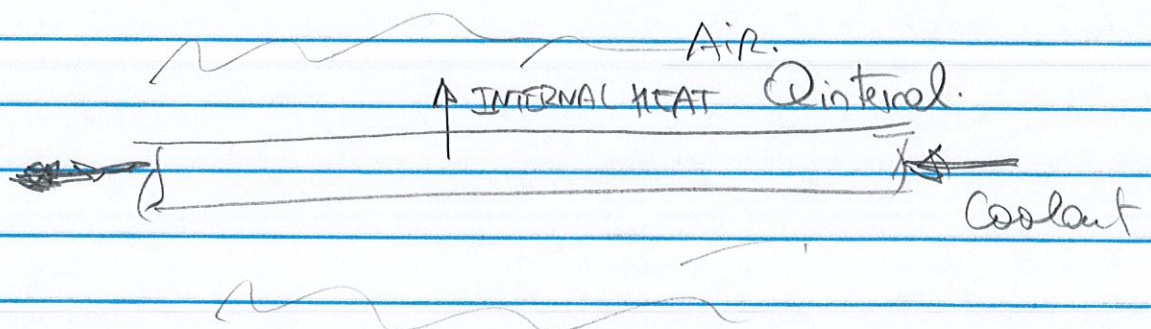 AiR.
INTERNAL HEAT Qinternal.
Coolant